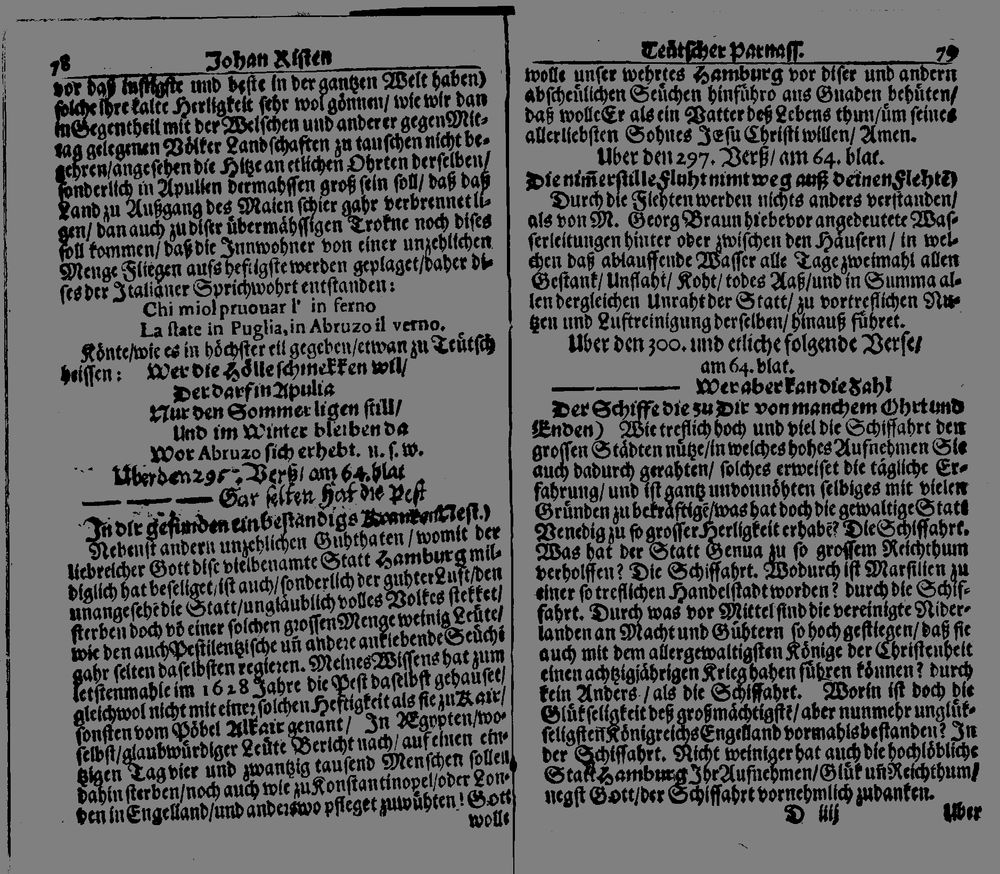 78 Johan Risten
vor daß lustigste und beste in der gantzen Welt haben)
solche ihre kalte Herligkeit sehr wol gönnen/ wie wir dan
in Gegentheil mit der Welschen und anderer gegen Mit-
tag gelegenen Völker Landschaften zu tauschen nicht be-
gehren/angesehen die Hitze an etlichen Ohrten derselben/
sonderlich in Apulien dermahssen groß sein soll/ daß daß
Land zu Außgang des Maien schier gahr verbrennet li-
gen/ dan auch zu diser übermähssigen Trokne noch dises
soll kommen/ daß die Innwohner von einer unzehlichen
Menge Fliegen aufs heftigste werden geplaget/daher di-
ses der Italianer Sprichwohrt entstanden:
Chi miol pruouar l' in ferno
La state in Puglia, in Abruzo il verno.
Könte/wie es in höchster eil gegeben/etwan zu Teütsch
heissen: Wer die Hölle schmekken wil/
Der darf in Apulia
Nur den Sommer ligen still/
Und im Winter bleiben da
Wor Abruzo sich erhebt. u. s. w.
Uber den 295. Verß/ am 64. blat
Gar selten hat die Pest
In dir gefunden ein beständigs Kranken Nest.)
Nebenst andern unzehlichen Guhthaten/ womit der
liebreicher Gott dise vielbenamte Statt Hamburg mil-
diglich hat beseliget/ist auch/sonderlich der guhter Luft/den
unangesehē die Statt/ungläublich volles Volkes stekket/
sterben doch vō einer solchen grossen Menge weinig Leüte/
wie den auch Pestilentzische uñ andere anklebende Seüchē
gahr selten daselbsten regieren. Meines Wissens hat zum
letstenmahle im 1628 Jahre die Pest daselbst gehauset/
gleichwol nicht mit einer solchen Heftigkeit als sie zu Kair/
sonsten vom Pöbel Alkair genant/ In Ægypten/wo-
selbst/glaubwürdiger Leüte Bericht nach/auf einen ein-
tzigen Tag vier und zwantzig tausend Menschen sollen
dahin sterben/noch auch wie zu Konstantinopel/oder Lon-
den in Engelland/und anderswo pfleget zuwühten! Gott
wolle
Teütscher Parnass. 79
wolle unser wehrtes Hamburg vor diser und andern
abscheülichen Seüchen hinführo aus Gnaden behüten/
daß wolle Er als ein Vatter deß Lebens thun/üm seines
allerliebsten Sohnes Jesu Christi willen/ Amen.
Uber den 297. Verß/ am 64. blat.
Die nim̃er stille Fluht nimt weg auß deinen Flehtē)
Durch die Flehten werden nichts anders verstanden/
als von M. Georg Braun hiebevor angedeutete Was-
serleitungen hinter oder zwischen den Häusern/ in wel-
chen daß ablauffende Wasser alle Tage zweimahl allen
Gestank/ Unflaht/ Koht/ todes Aaß/und in Summa al-
len dergleichen Unraht der Statt/ zu vortreflichen Nu-
tzen und Luftreinigung derselben/ hinauß führet.
Uber den 300. und etliche folgende Verse/
am 64. blat.
Wer aber kan die Zahl
Der Schiffe die zu Dir von manchem Ohrt und
Enden) Wie treflich hoch und viel die Schiffahrt den
grossen Städten nütze/in welches hohes Aufnehmen Sie
auch dadurch gerahten/ solches erweiset die tägliche Er-
fahrung/ und ist gantz unvonnöhten selbiges mit vielen
Gründen zu bekräftigē/was hat doch die gewaltige Statt
Venedig zu so grosser Herligkeit erhabē? Die Schiffahrt.
Was hat der Statt Genua zu so grossem Reichthum
verholffen? Die Schiffahrt. Wodurch ist Marsilien zu
einer so treflichen Handelstatt worden? durch die Schif-
fahrt. Durch was vor Mittel sind die vereinigte Nider-
landen an Macht und Gühtern so hoch gestiegen/ daß sie
auch mit dem allergewaltigsten Könige der Christenheit
einen achtzigjährigen Krieg haben führen können? durch
kein Anders/als die Schiffahrt. Worin ist doch die
Glükseligkeit deß großmächtigstē/ aber nunmehr unglük-
seligsten Königreichs Engelland vormahls bestanden? In
der Schiffahrt. Nicht weiniger hat auch die hochlöbliche
Statt Hamburg Ihr Aufnehmen/Glük uñ Reichthum/
negst Gott/der Schiffahrt vornehmlich zudanken.
D iiij Uber